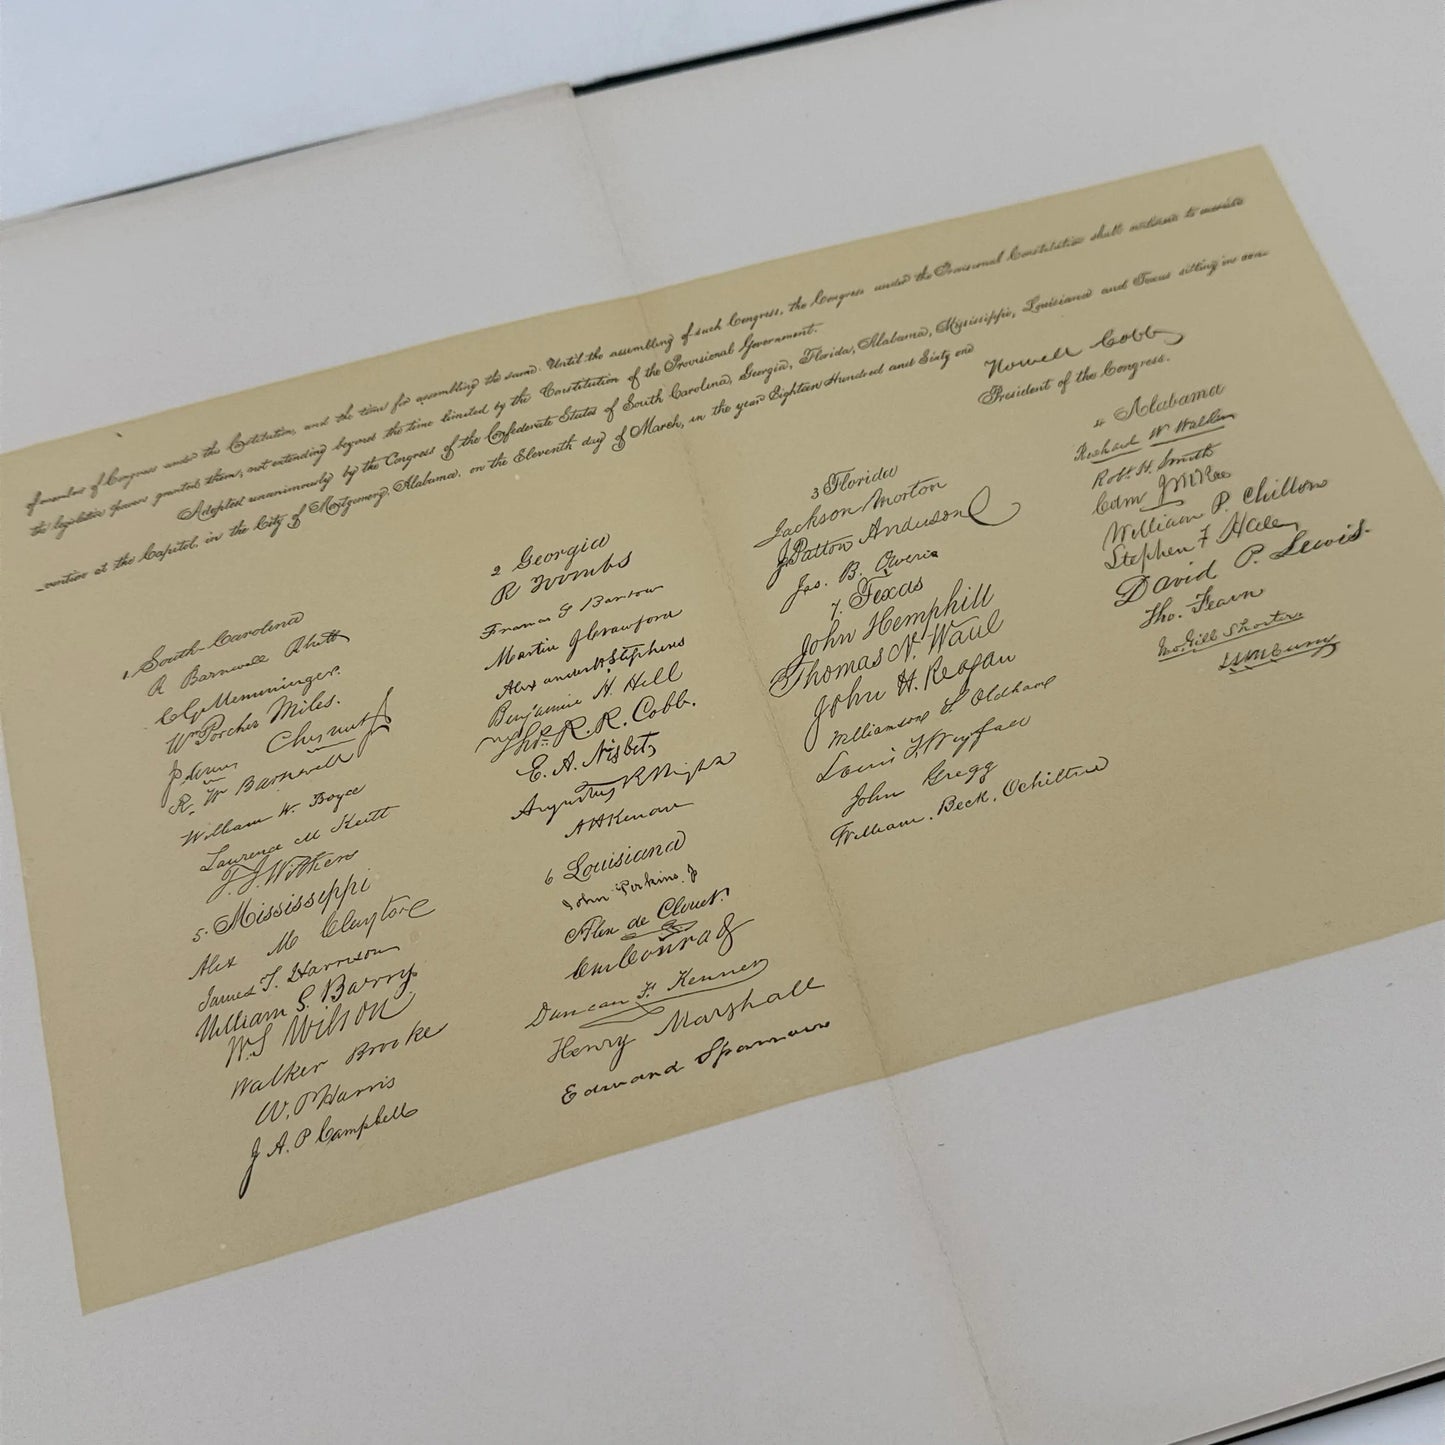 of members of Congress under the Constitution, and the time for assembling the same. Until the assembling of such Congress, the Congress under the Provisional Constitution shall continue to exercise
the legislative powers granted them; not extending beyond the time limited by the Constitution of the Provisional Government.
Adopted unanimously by the Congress of the Confederate States of South Carolina, Georgia, Florida, Alabama, Mississippi, Louisiana and Texas sitting in con-
vention at the Capitol, in the City of Montgomery, Alabama, on the Eleventh day of March, in the year Eighteen Hundred and Sixty one
Howell Cobb
President of the Congress.
1 South-Carolina
R Barnwell Rhett
C G Memminger.
Wm Porcher Miles.
James Chesnut Jr
R. W Barnwell
William W. Boyce
Lawrence M Keitt
T. J. Withers
5. Mississippi
Alex M Clayton
James T. Harrison
William S. Barry
W. S Wilson
Walker Brooke
W. P Harris
J. A. P Campbell
2 Georgia
R Toombs
Francis S Bartow
Martin J Crawford
Alexander H Stephens
Benjamin H. Hill
Tho. R. R. Cobb.
E. A. Nisbet
Augustus R Wright
A H Kenan
6 Louisiana
John Perkins. Jr
Alex de Clouet.
C M Conrad
Duncan F. Kenner
Henry Marshall
Edward Sparrow
3 Florida
Jackson Morton
J. Patton Anderson
Jas. B. Owens
7. Texas
John Hemphill
Thomas N. Waul
John H. Reagan
Williamson S. Oldham
Louis T. Wigfall
John Gregg
William. Beck. Ochiltree
4 Alabama
Richard W Walker
Robt H. Smith
William P. Chilton
Stephen F Hale
David P. Lewis.
Tho. Fearn
Jno. Gill Shorter
J L M Curry